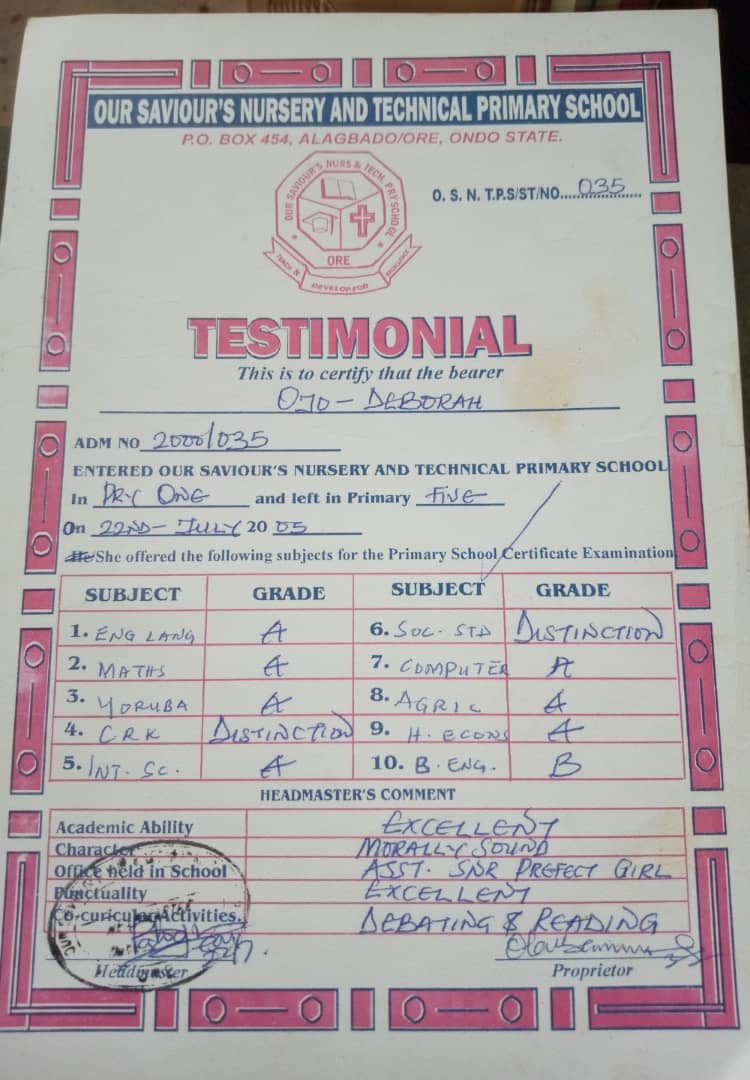 OUR SAVIOUR'S NURSERY AND TECHNICAL PRIMARY SCHOOL
P.O. BOX 454, ALAGBADO/ORE, ONDO STATE.
OUR SAVIOUR'S NURS & TECH. PRY SCHOOL
ORE
TEACH & DEVELOP FOR EXCELLENCE
O. S. N. T.P.S/ST/NO....035....
TESTIMONIAL
This is to certify that the bearer
OJO - DEBORAH
ADM NO 2000/035
ENTERED OUR SAVIOUR'S NURSERY AND TECHNICAL PRIMARY SCHOOL
In PRY ONE and left in Primary FIVE
On 22ND - JULY 20 05
She offered the following subjects for the Primary School Certificate Examination
SUBJECT GRADE SUBJECT GRADE
1. ENG LANG A 6. SOC. STD DISTINCTION
2. MATHS A 7. COMPUTER A
3. YORUBA A 8. AGRIC A
4. CRK DISTINCTION 9. H. ECONS A
5. INT. SC. A 10. B. ENG. B
HEADMASTER'S COMMENT
Academic Ability EXCELLENT
Character MORALLY SOUND
Office held in School ASST. SNR PREFECT GIRL
Punctuality EXCELLENT
Co-curicular Activities. DEBATING & READING
Headmaster Proprietor